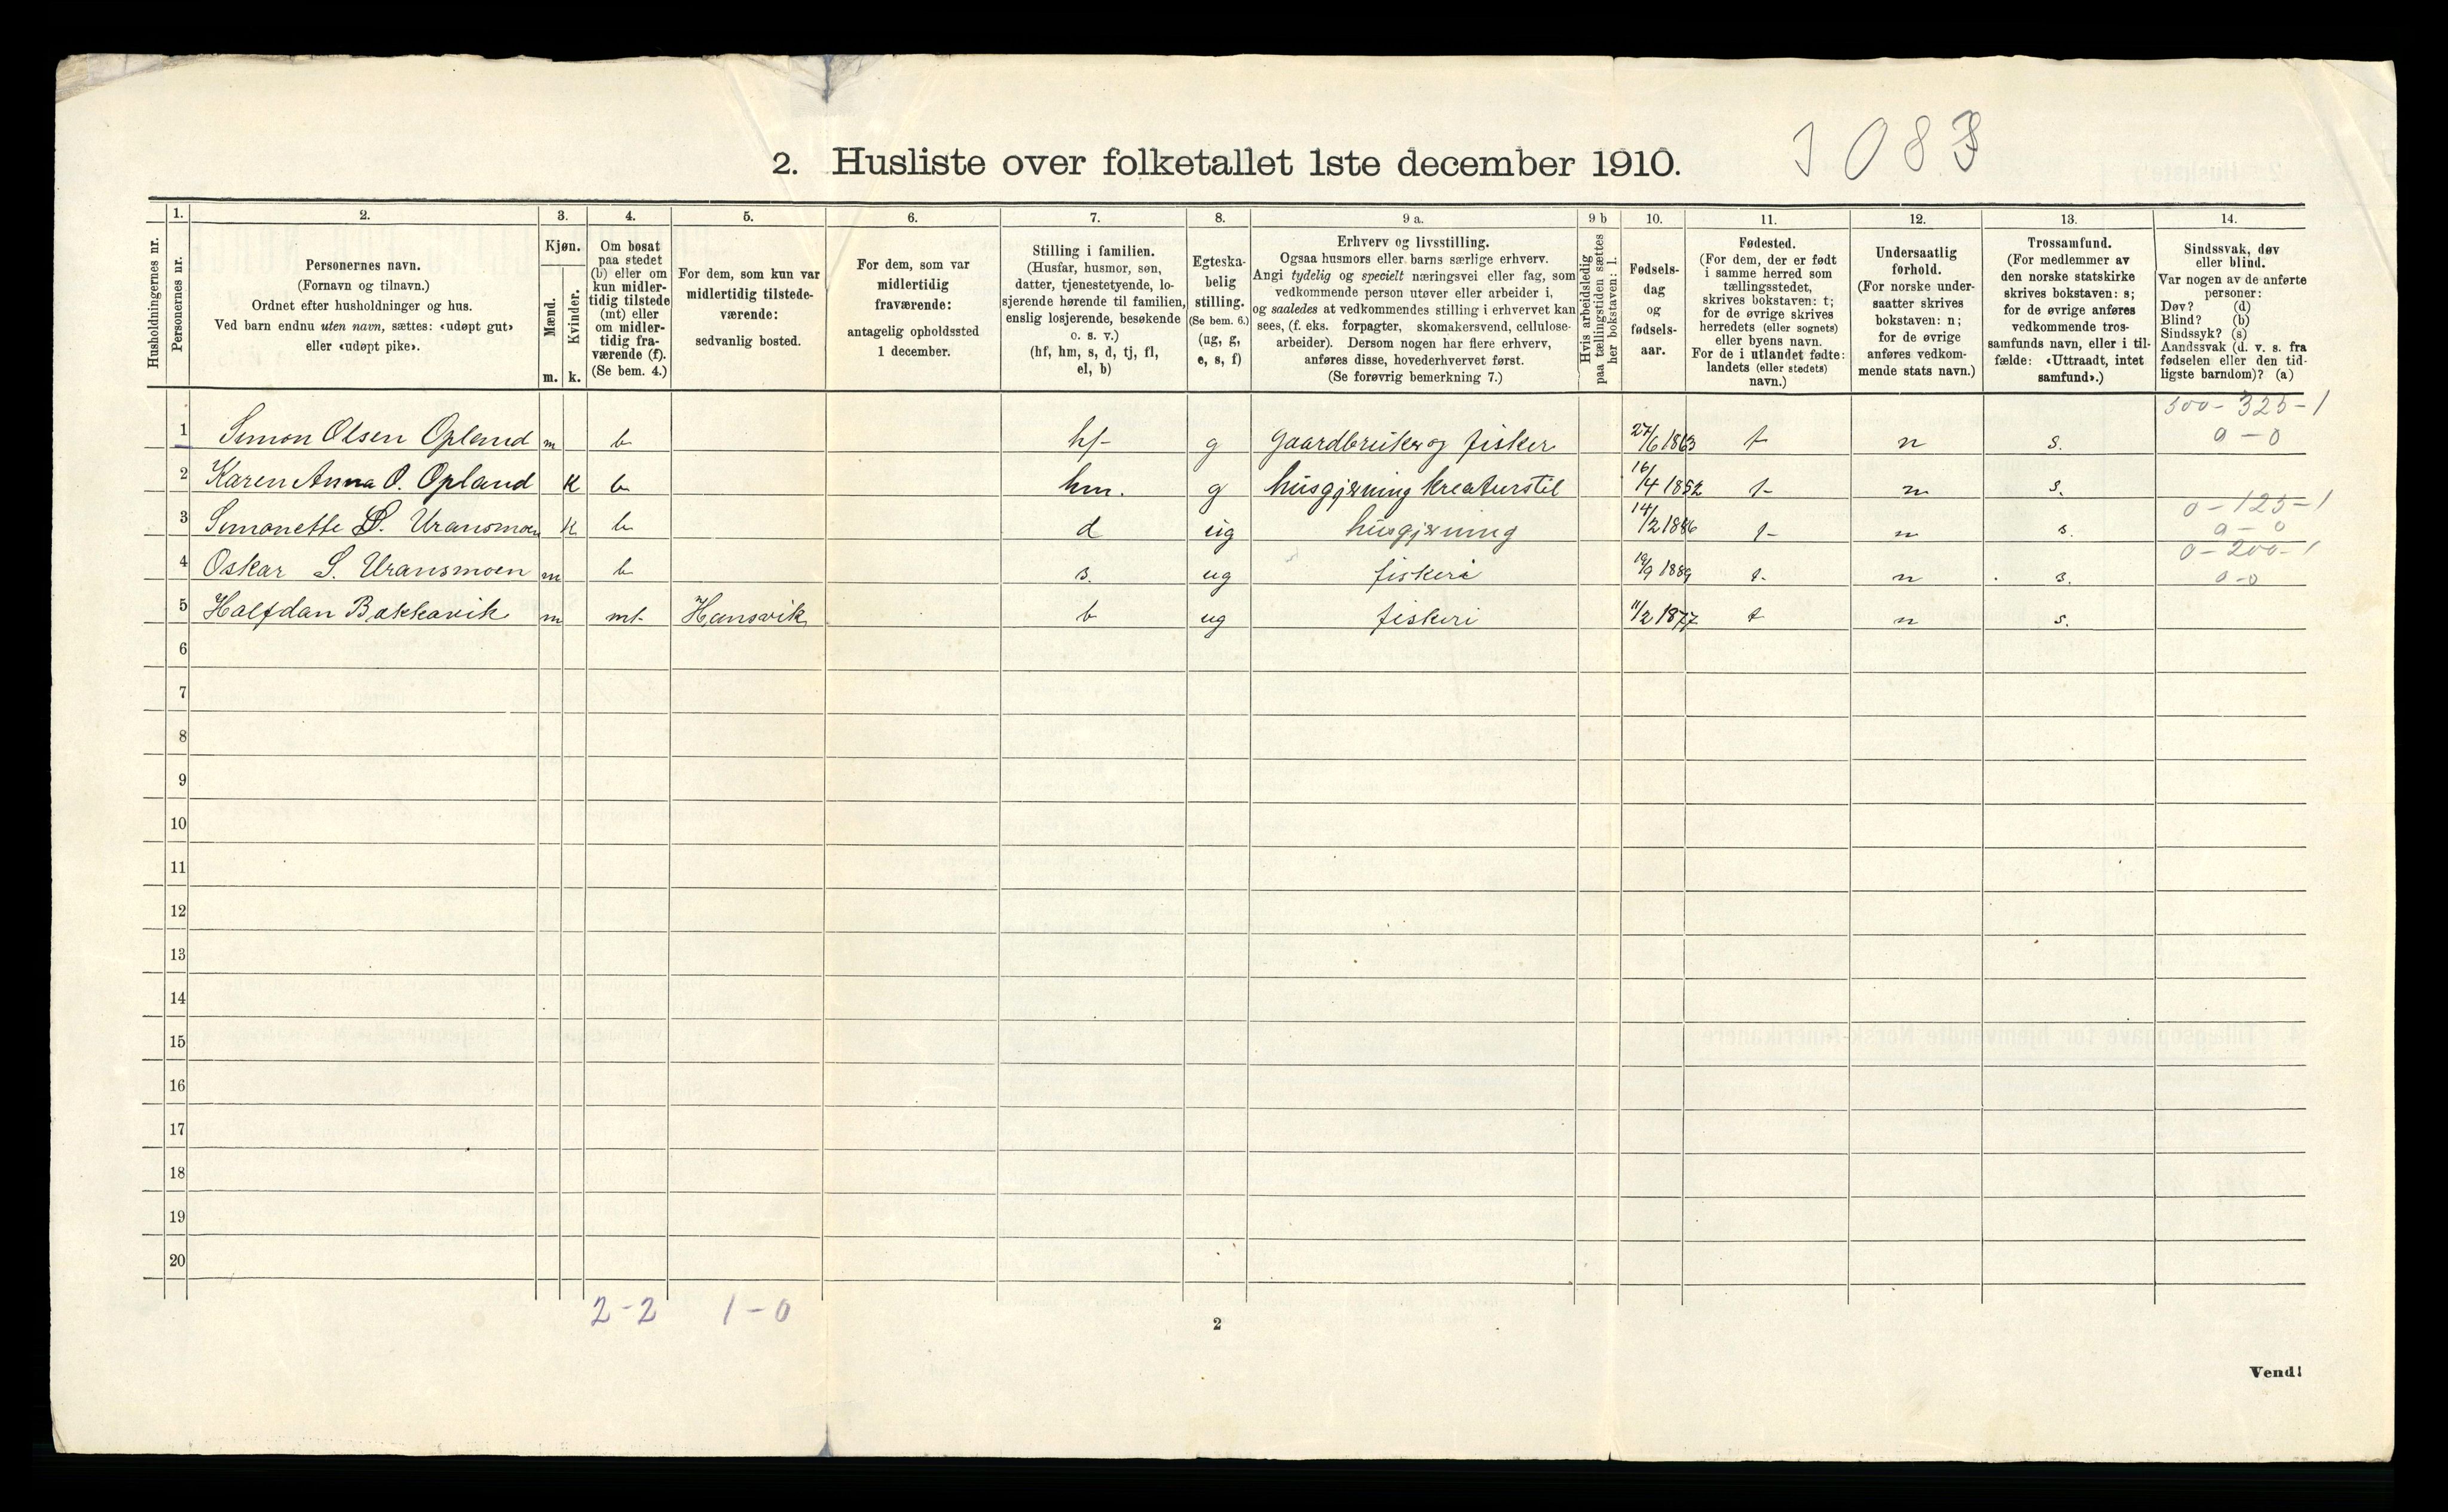 1083
2. Husliste over folketallet 1ste december 1910.
Husholdningernes nr.
1.
Personernes nr.
2.
Personernes navn.
(Fornavn og tilnavn.)
Ordnet efter husholdninger og hus.
Ved barn endnu uten navn, sættes: «udøpt gut»
eller «udøpt pike».
3.
Kjøn.
Mænd.
Kvinder.
m. k.
4.
Om bosat
paa stedet
(b) eller om
kun midler-
tidig tilstede
(mt) eller
om midler-
tidig fra-
værende (f).
(Se bem. 4.)
5.
For dem, som kun var
midlertidig tilstede-
værende:
sedvanlig bosted.
6.
For dem, som var
midlertidig
fraværende:
antagelig opholdssted
1 december.
7.
Stilling i familien.
(Husfar, husmor, søn,
datter, tjenestetyende, lo-
sjerende hørende til familien,
enslig losjerende, besøkende
o. s. v.)
(hf, hm, s, d, tj, fl,
el, b)
8.
Egteska-
belig
stilling.
(Se bem. 6.)
(ug, g,
e, s, f)
9 a.
Erhverv og livsstilling.
Ogsaa husmors eller barns særlige erhverv.
Angi tydelig og specielt næringsvei eller fag, som
vedkommende person utøver eller arbeider i,
og saaledes at vedkommendes stilling i erhvervet kan
sees, (f. eks. forpagter, skomakersvend, cellulose-
arbeider). Dersom nogen har flere erhverv,
anføres disse, hovederhvervet først.
(Se forøvrig bemerkning 7.)
9 b
Hvis arbeidsledig
paa tællingstiden sættes
her bokstaven: l.
10.
Fødsels-
dag
og
fødsels-
aar.
11.
Fødested.
(For dem, der er født
i samme herred som
tællingsstedet,
skrives bokstaven: t;
for de øvrige skrives
herredets (eller sognets)
eller byens navn.
For de i utlandet fødte:
landets (eller stedets)
navn.)
12.
Undersaatlig
forhold.
(For norske under-
saatter skrives
bokstaven: n;
for de øvrige
anføres vedkom-
mende stats navn.)
13.
Trossamfund.
(For medlemmer av
den norske statskirke
skrives bokstaven: s;
for de øvrige anføres
vedkommende tros-
samfunds navn, eller i til-
fælde: «Uttraadt, intet
samfund».)
14.
Sindssvak, døv
eller blind.
Var nogen av de anførte
personer:
Døv? (d)
Blind? (b)
Sindssyk? (s)
Aandssvak (d. v. s. fra
fødselen eller den tid-
ligste barndom)? (a)
500-325-1
1 Simon Olsen Opland m b hf- g gaardbruker og fisker 27/6 1863 t n s. 0-0
2 Karen Anna O. Opland K b hm. g husgjærning kreaturstil 16/4 1852 t- n s.
0-125-1
3 Simonette S. Uransmoen K b d ug husgjærning 14/2 1886 t- n s. 0-0
0-200-1
4 Oskar S. Uransmoen m b s. ug fiskeri 19/9 1889 t- n s. 0-0
5 Halfdan Bakkavik m mt- Hansvik b ug fiskeri 11/2 1877 t n s.
6
7
8
9
10
11
12
13
14
15
16
17
18
19
20
2-2 1-0
2
Vend!